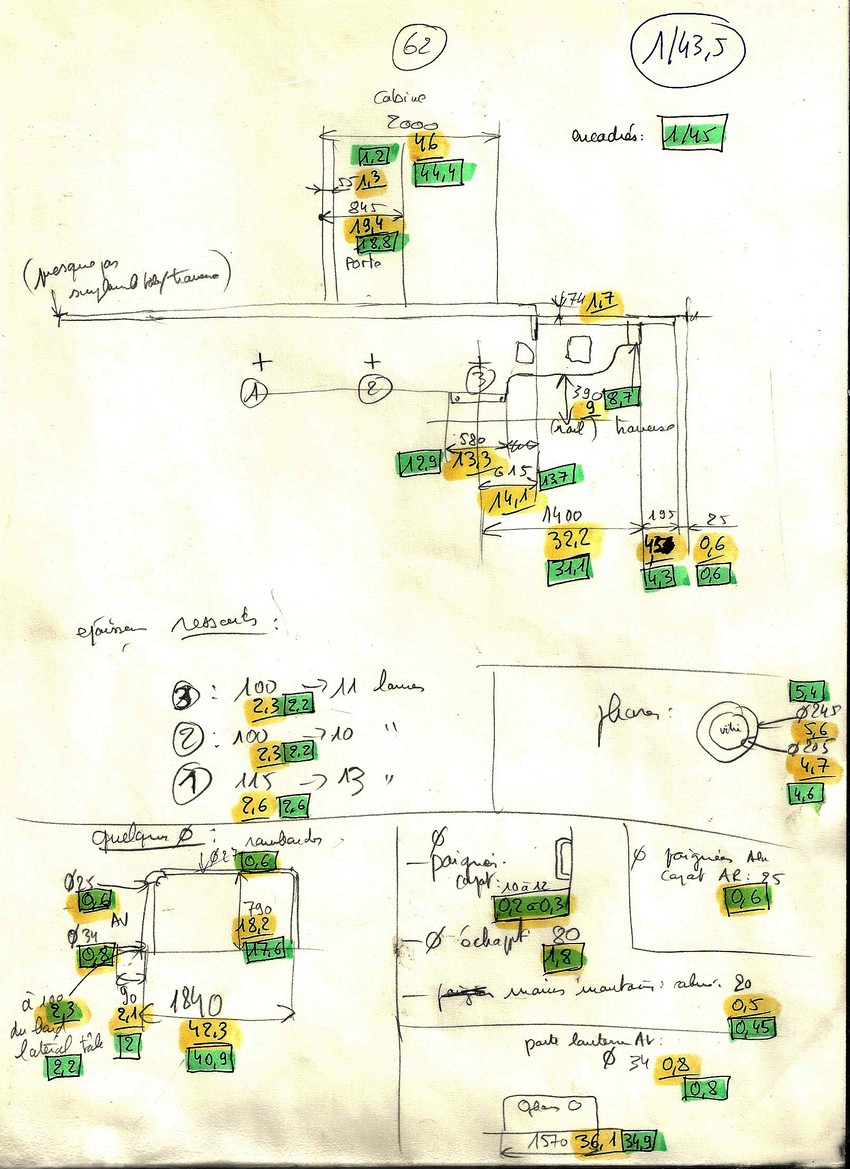 62
1/43,5
Cabine
2000
encadrés: 1/45
1,2
46
44,4
1,3
845
19,4
18,8
Porte
(presque pas
74 1,7
1
2
3
390 8,7
9
(rail) traverse
580
12,9
13,3
615
13,7
14,1
1400
195
25
32,2
0,6
31,1
4,3
0,6
ressorts :
3 : 100 → 11 lames
2,3 2,2
2 : 100 → 10 "
2,3 2,2
1 : 115 → 13 "
2,6 2,6
phares :
vitre
5,4
Ø 245
5,6
Ø 205
4,7
4,6
quelques Ø : rambardes
Ø 27 0,6
Ø 25
0,6
AV
Ø 34
0,8
790
18,2
17,6
à 100
2,3
du bord
latéral tôle
2,2
90
2,1
2
1840
42,3
40,9
Ø
poignées
capot: 10 à 12
0,2 à 0,3
Ø échapt 80
1,8
Ø poignées
capot AR: 25
0,6
mains montoirs : 20
0,5
0,45
porte lanterne AV:
Ø 34 0,8
0,8
1570 36,1 34,9